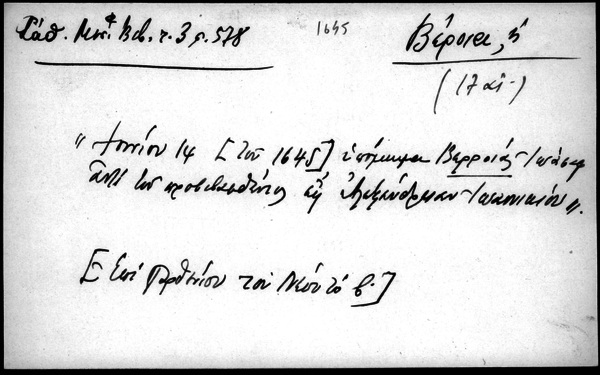 Σάθ. Μεσ. Βιβ. τ. 3 σ. 578
1645
Βέροια, ἡ
(17 αἰ.)
"Ἰουνίου 14 [τοῦ 1645] ὑπόμνημα Βερροίας Ἰωάσαφ
ἀντὶ τοῦ προβιβασθέντος εἰς Ἀλεξάνδρειαν Ἰωαννικίου".
[Ἐπὶ Παρθενίου τοῦ Νέου τὸ β.]